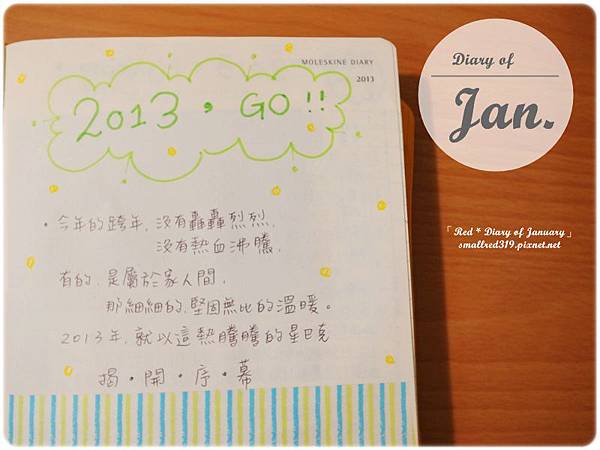 MOLESKINE DIARY
2013
2013，GO!!
・今年的跨年，沒有轟轟烈烈，
沒有熱血沸騰，
有的，是屬於家人間，
那細細的，堅固無比的溫暖。
2013年，就以這熱騰騰的星巴克
揭・開・序・幕
Diary of
Jan.
「Red * Diary of January」
smallred319.pixnet.net